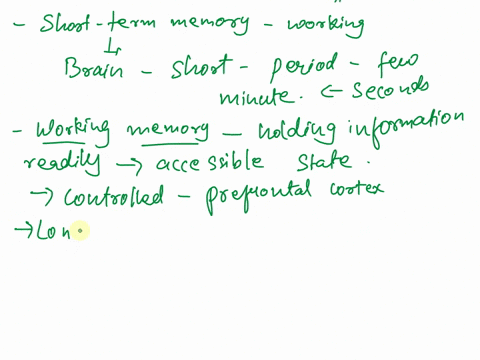 - Short-term memory - working
↳
Brain - short - period - few
minute. ← seconds
- working memory - holding information
readily → accessible state.
→ controlled - prefrontal cortex
→ Lon